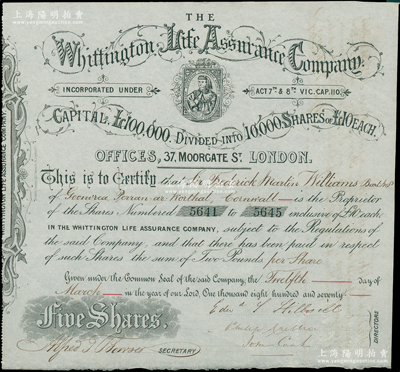 上海阳明拍卖
THE
Whittington Life Assurance Company.
INCORPORATED UNDER
ACT 7TH & 8TH VIC. CAP. 110.
CAPITAL £100,000. DIVIDED INTO 10,000 SHARES OF £10 EACH.
OFFICES, 37, MOORGATE ST. LONDON.
This is to Certify that Sir Frederick Martin Williams
of Goonvrea Perran ar Worthal Cornwall is the Proprietor
of the Shares Numbered 5641 to 5645 inclusive of £10 each
IN THE WHITTINGTON LIFE ASSURANCE COMPANY, subject to the Regulations of
the said Company, and that there has been paid in respect
of such Shares the sum of Two Pounds per Share
Given under the Common Seal of the said Company, the Twelfth day of
March in the year of our Lord, One thousand eight hundred and seventy
Five Shares.
Alfred T SECRETARY
DIRECTORS